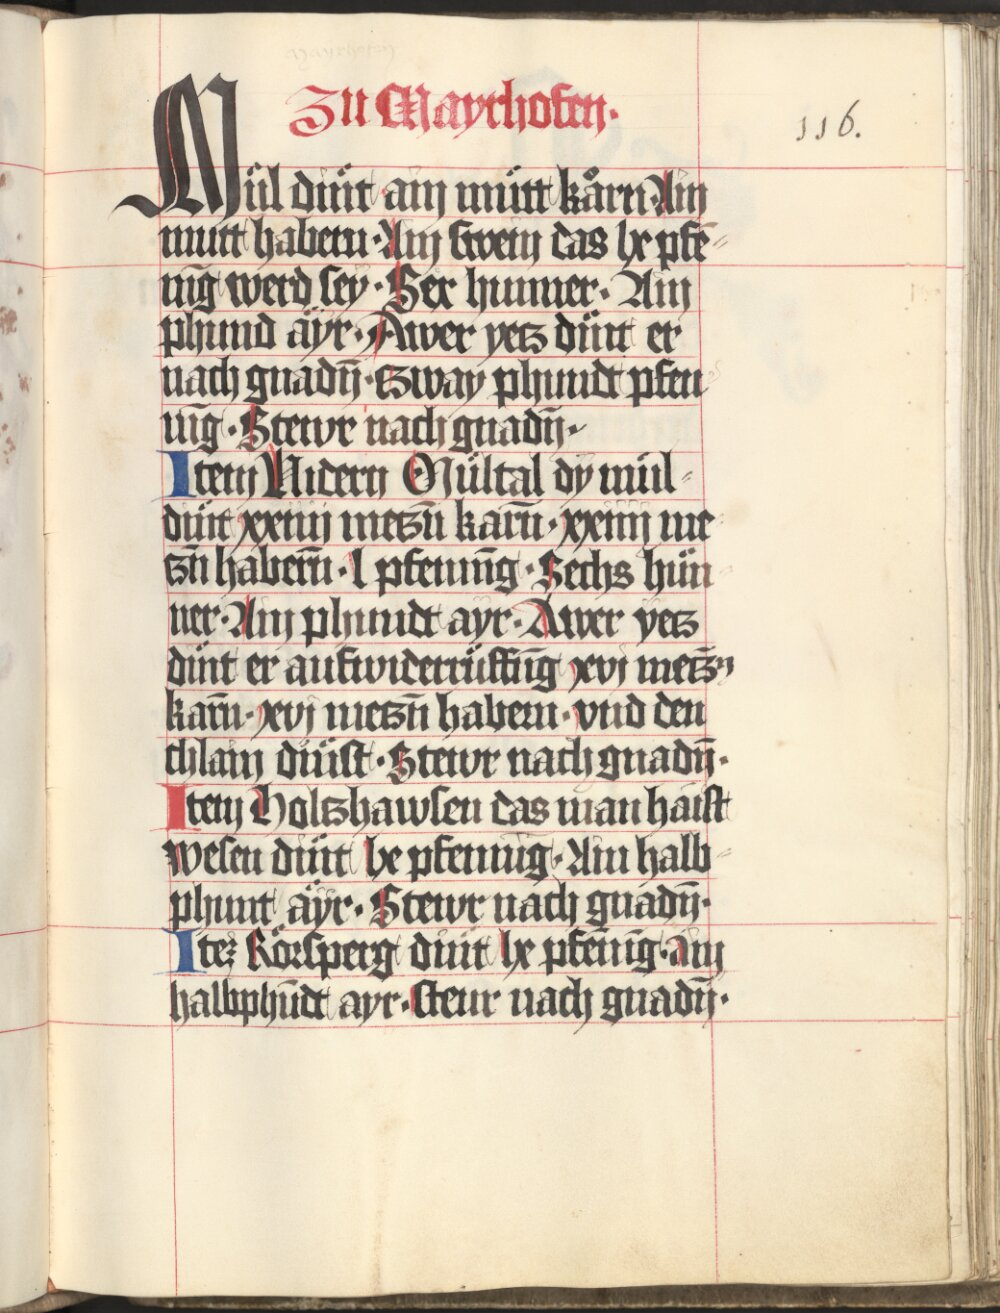 Mayrhofen
Zu Mayrhofen.
116.
Mül dint ain mütt kårn · Ain
mutt habern · Ain swein das lx pfe¯=
nīg werd sey · Sex hunner · Ain
phund äyr · Awer yetz dint er
nach gnadn̄ · tzway phundt pfen
nīg · Stewr nach gnadn̄ ·
Item Nidern Mültal dy mül=
dint xxiiij metzn̄ karn̄ · xxiiij me
tzn̄ habern̄ · l pfennīg · Sechs hün
ner · Ain phundt ayr · Awer yetz
dint er aufwiderrüffūg xvj metzn̄
karn̄ · xvj metzn̄ habern · vnd den
chlain dinst · Stewr nach gnadn̄ ·
Item Holtzhawsen das man haist
wesen dint lx pfennīg · Ain halb=
phunt äyr · Stewr nach gnadn̄ ·
Itez Rörsperg dint lx pfenīg · ain
halbphūdt ayr · steur nach gnadn̄ ·